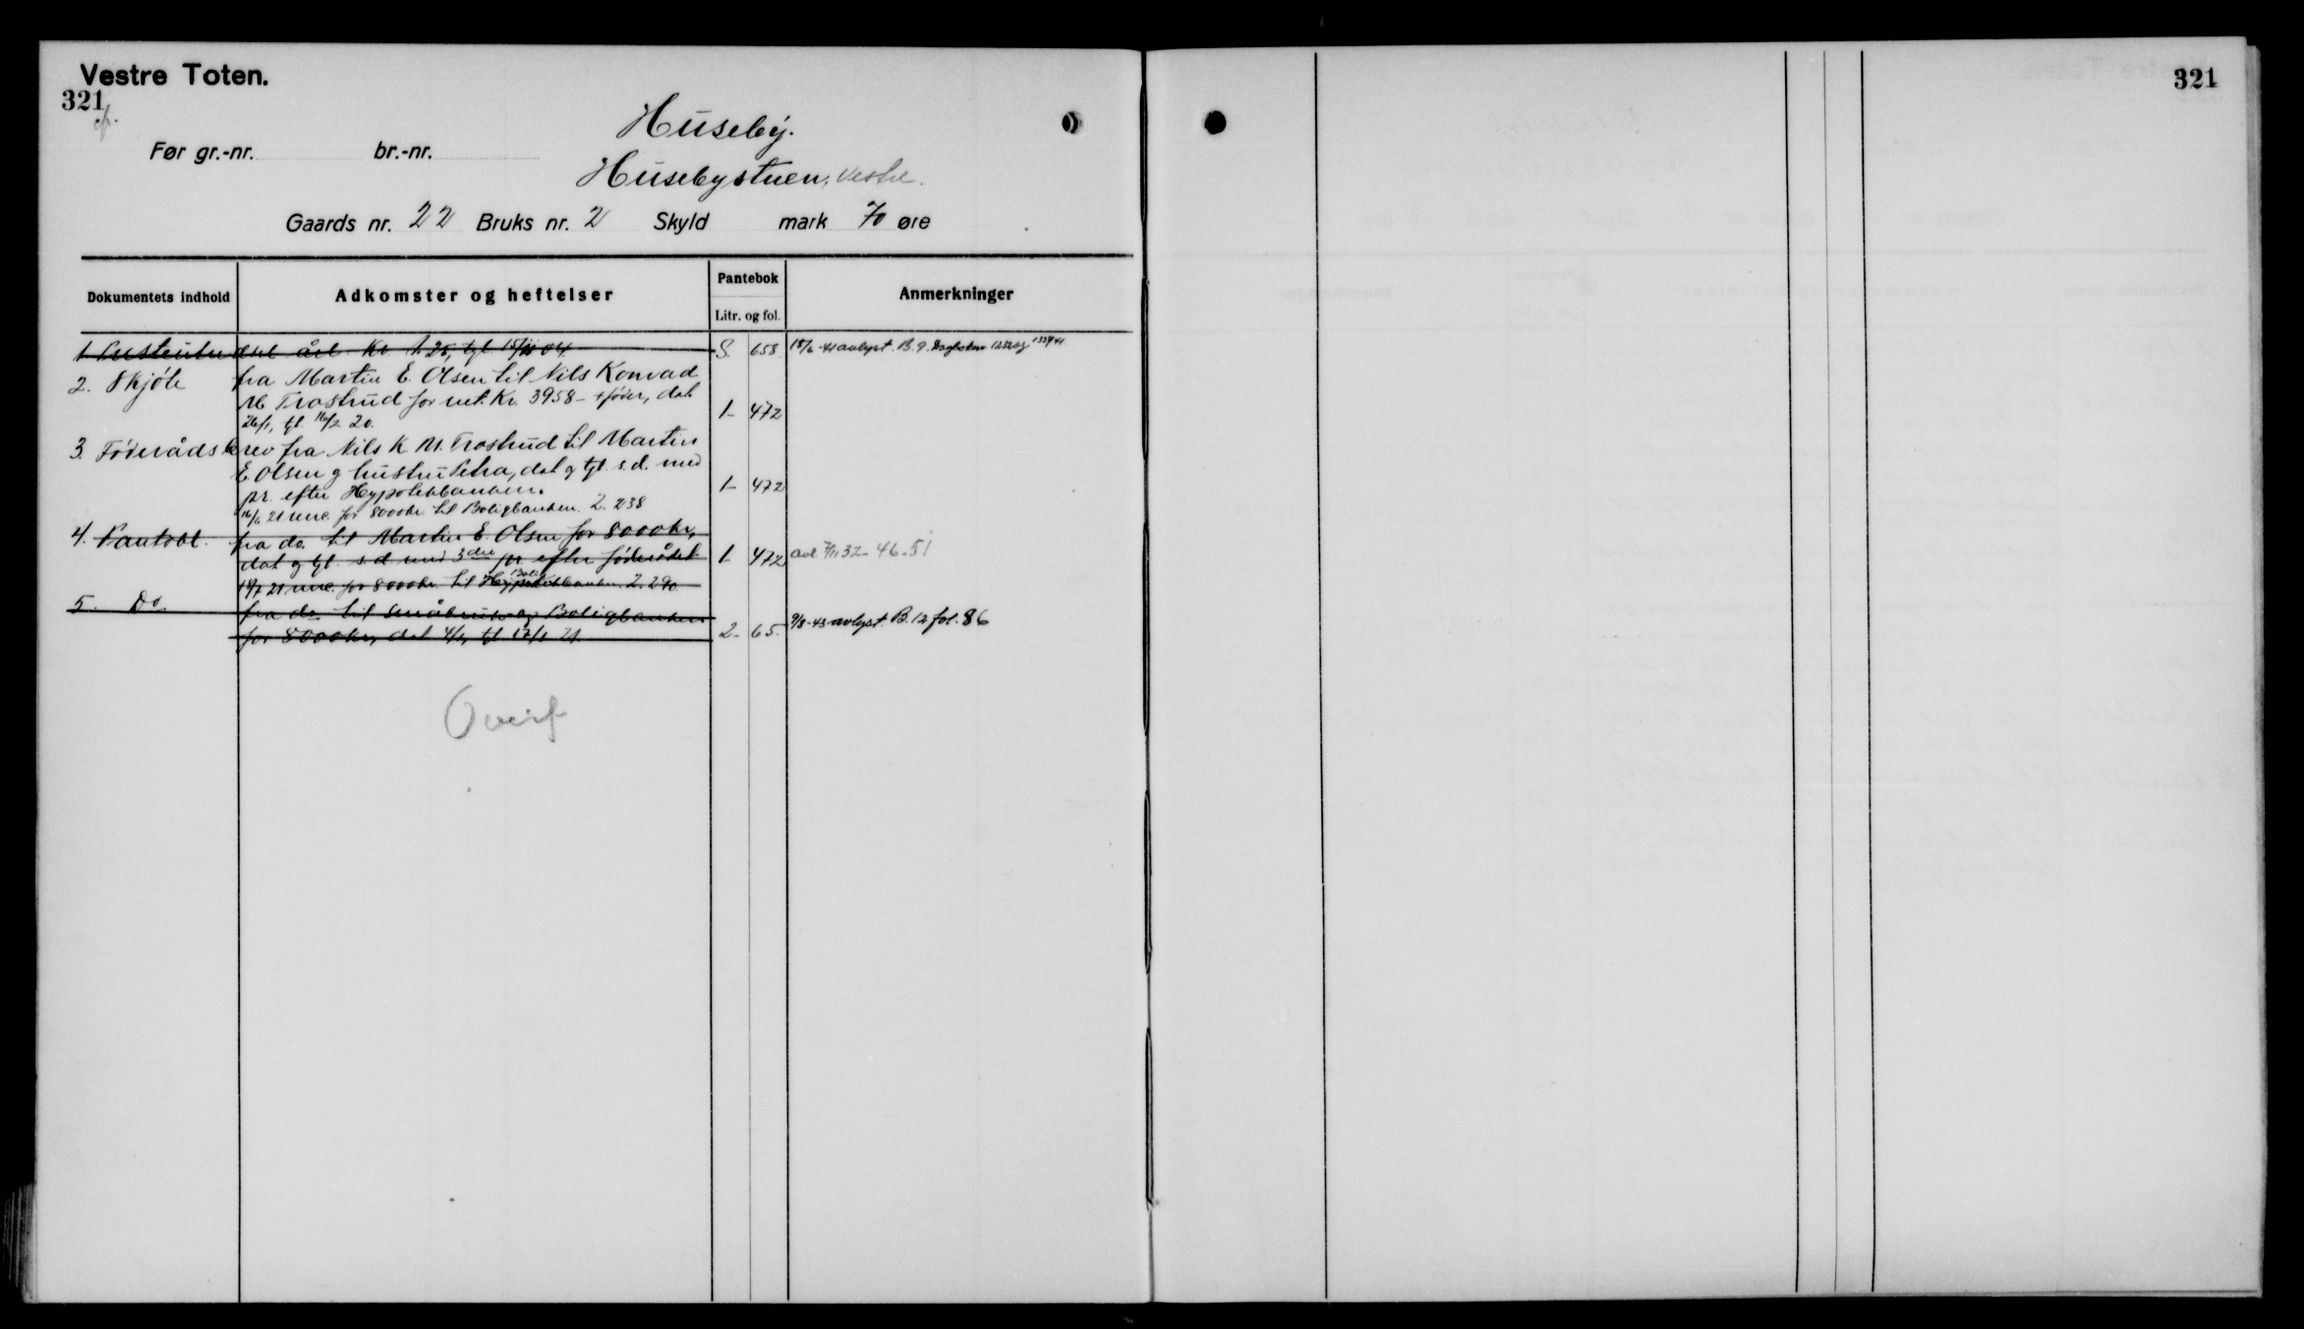 Vestre Toten.
321
321
Huseby.
Før gr.-nr. br.-nr.
Husebystuen, vestre.
Gaards nr. 22 Bruks nr. 2 Skyld mark 70 øre
Dokumentets indhold Adkomster og heftelser Pantebok Anmerkninger
Litr. og fol.
årl. Kr. 1.25, tgl. 04. S. 658 18/6-41 avlyst. B. 9.
2. Skjøte fra Martin E. Olsen til Nils Konrad
M. Trostrud for net. Kr. 3958- + føder, dat 1- 472
26/1, tgl. 16/2 20.
3. Føderådsbrev fra Nils K. M. Trostrud til Martin
E. Olsen og hustru Petra, dat og tgl. s.d. med 1- 472
pr. efter Hypotekbanken.
21 for 8000 kr. til Boligbanken. 2. 238
4. Pantobl. fra do. til Martin E. Olsen for 8000 kr.,
dat og tgl. s.d. med 3die pr. efter føderådet 1- 472 avl. 7/11 32-46-51
21 for 8000 kr. til Boligbanken. 2. 240
5. Do. fra do. til Småbruk og Boligbanken
for 8000 kr., dat 4/1, tgl 17/1 21. 2- 65. 9/8-43 avlyst. B. 12 fol. 86
Overf